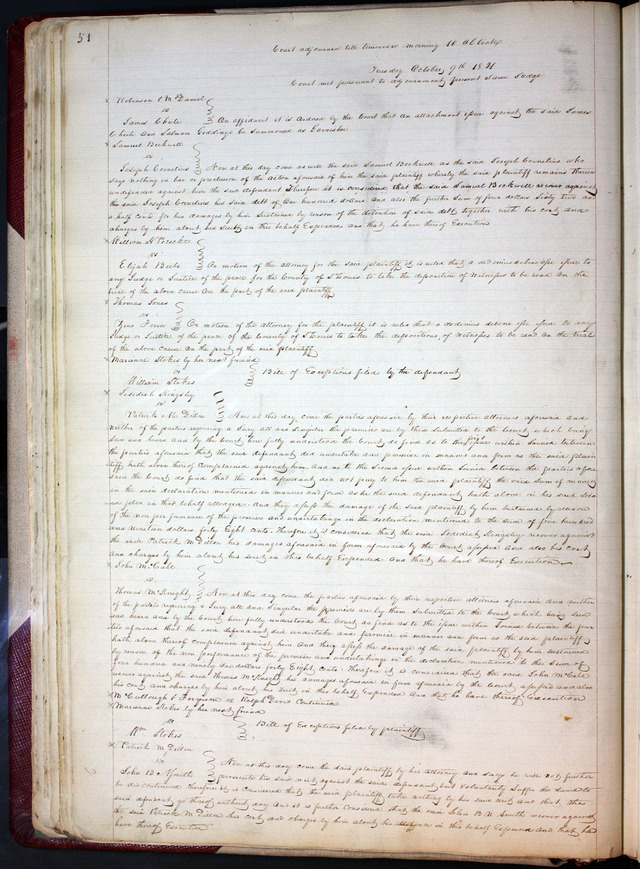 51
Court adjourned till tomorrow morning 10 oClock
Tuesday October 9th 1821
Court met pursuant to adjournment present same Judge
Robinson & McDaniel
vs
James Chute On affidavit it is ordered by the Court that an attachment issue against the said James
Chute and Salmon Giddings be summoned as Garnishee
Samuel Beckwell
vs
Joseph Cornelius Now at this day come as well the said Samuel Beckwell as the said Joseph Cornelius who
says nothing in bar or preclusion of the action aforesaid of him the said plaintiff whereby the said plaintiff remains therein
undefended against him the said defendant Therefore it is considered that the said Samuel Beckwell recover against
the said Joseph Cornelius his said debt of One hundred dollars and also the further Sum of four dollars Sixty two and
a half cents for his damages by him Sustained by reason of the detention of said debt together with his cost and
charges by him about his Suit in this behalf Expended and that he have thereof Execution
William A
vs
Elijah Beebe On motion of the attorney for the said plaintiff it is ruled that a dedimus issue to
any Judge or Justice of the peace for the County of St Louis to take the deposition of Witnesses to be read on the
trial of the above cause on the part of the said plaintiff
Thomas Jones
vs
On motion of the attorney for the plaintiff it is ruled that a dedimus issue to any
Judge or Justice of the peace of the County of St Louis to take the depositions of witnesses to be read on the trial
of the above cause on the part of the said plaintiff
Marianne Stokes by her next friend
vs Bill of Exceptions filed by the defendant
William Stokes
Jedediah Kingsley
vs
Patrick McDillon Now at this day come the parties aforesaid by their respective attorneys aforesaid and
neither of the parties requiring a Jury all and singular the premises are by them Submitted to the Court, which being
seen and heard and by the Court here fully understood the Court do find as to the first issue within Joined between
the parties aforesaid that the said defendant did undertake and promise in manner and form as the said plain
tiff hath above thereof Complained against him, And as to the Second issue within Joined between the parties afore
said the Court do find that the said defendant did not pay to him the said plaintiff the said Sum of money
in the said declaration mentioned in manner and form as he the said defendant hath above in his said Sec
ond plea in that behalf alleged. And they assess the damage of the said plaintiff by him Sustained by reason
of the non performance of the promises and undertakings in the declaration mentioned to the Sum of five hundred
and Nineteen dollars forty Eight cents. Therefore it is considered that the said Jedediah Kingsley recover against
the said Patrick McDillon his damages aforesaid in form aforesaid by the Court assessed and also his cost
and charges by him about his Suit in this behalf Expended And that he have thereof Execution
John McCabe
vs
Thomas McKnight Now at this day come the parties aforesaid by their respective attorneys aforesaid And neither
of the parties requiring a Jury all and Singular the premises are by them Submitted to the Court, which being Seen
and heard and by the Court here fully understood the Court do find as to the issue within Joined between the par
ties aforesaid that the said defendant did undertake and promise in manner and form as the said plaintiff
hath above thereof complained against him And they assess the damage of the said plaintiff by him Sustained
by reason of the non performance of the promises and undertakings in the declaration mentioned to the Sum of
four hundred and ninety six dollars forty Eight cents. Therefore it is considered that the said John McCabe
recover against the said Thomas McKnight his damages aforesaid in form aforesaid by the Court assessed and also
his cost and charges by him about his Suit in this behalf Expended And that he have thereof Execution
McCullough & Ferguson vs Ralph Davis Continued
Marianne Stokes by her next friend
vs Bill of Exceptions filed by plaintiff
Wm Stokes
Patrick McDillon
vs
John B N Smith Now at this day come the said plaintiff by his attorney and says he will not further
prosecute his said suit against the said defendant but Voluntarily Suffer the Same to
be discontinued Therefore it is considered that the said plaintiff take nothing by his said suit and that the
said defendant go thereof without day And it is further Considered that the said John B N Smith recover against
the said Patrick McDillon his cost and charges by him about his defence in this behalf Expended and that he
have thereof Execution